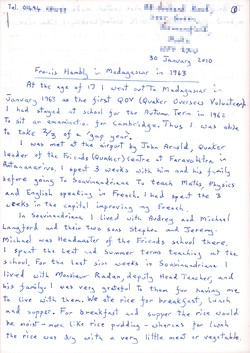 Tel. 01494
30 January 2010
Francis Hambly in Madagascar in 1963
At the age of 17 I went out to Madagascar in
January 1963 as the first QOV (Quaker Overseas Volunteer).
I had stayed at school for the Autumn Term in 1962
to sit an examination for Cambridge. Thus I was able
to take 2/3 of a 'gap year'.
I was met at the airport by John Arnold, Quaker
leader of the Friends (Quaker) Centre at Faravohitra in
Antananarivo. I spent 3 weeks with him and his family
before going to Soavinandriana to teach Maths, Physics
and English speaking in French. I had spent the 3
weeks in the capital improving my French.
In Soavinandriana I lived with Audrey and Michael
Langford and their two sons Stephen and Jeremy.
Michael was Headmaster of the Friends School there.
I spent the Lent and Summer terms teaching at the
school. For the last six weeks in Soavinandriana I
lived with Monsieur Radan, deputy Head Teacher, and
his family. I was very grateful to them for having me
to live with them. We ate rice for breakfast, lunch
and supper. For breakfast and supper the rice would
be moist - more like rice pudding - whereas for lunch
the rice was dry with a very little meat or vegetable.